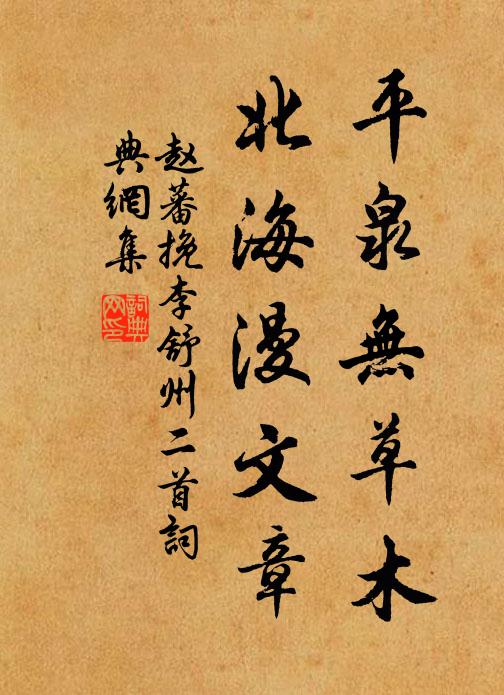 平泉無草木
北海漫文章
赵蕃挽李舒州二首詞
典網集
詞典
网印